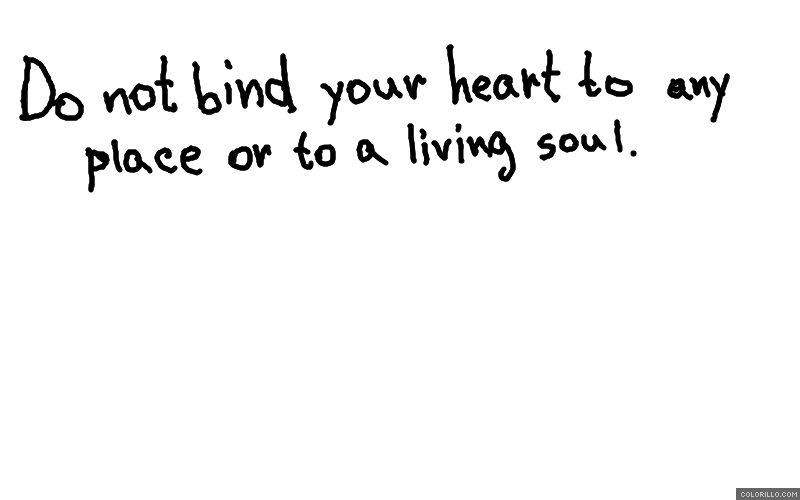 Do not bind your heart to any
place or to a living soul.
COLORILLO.COM